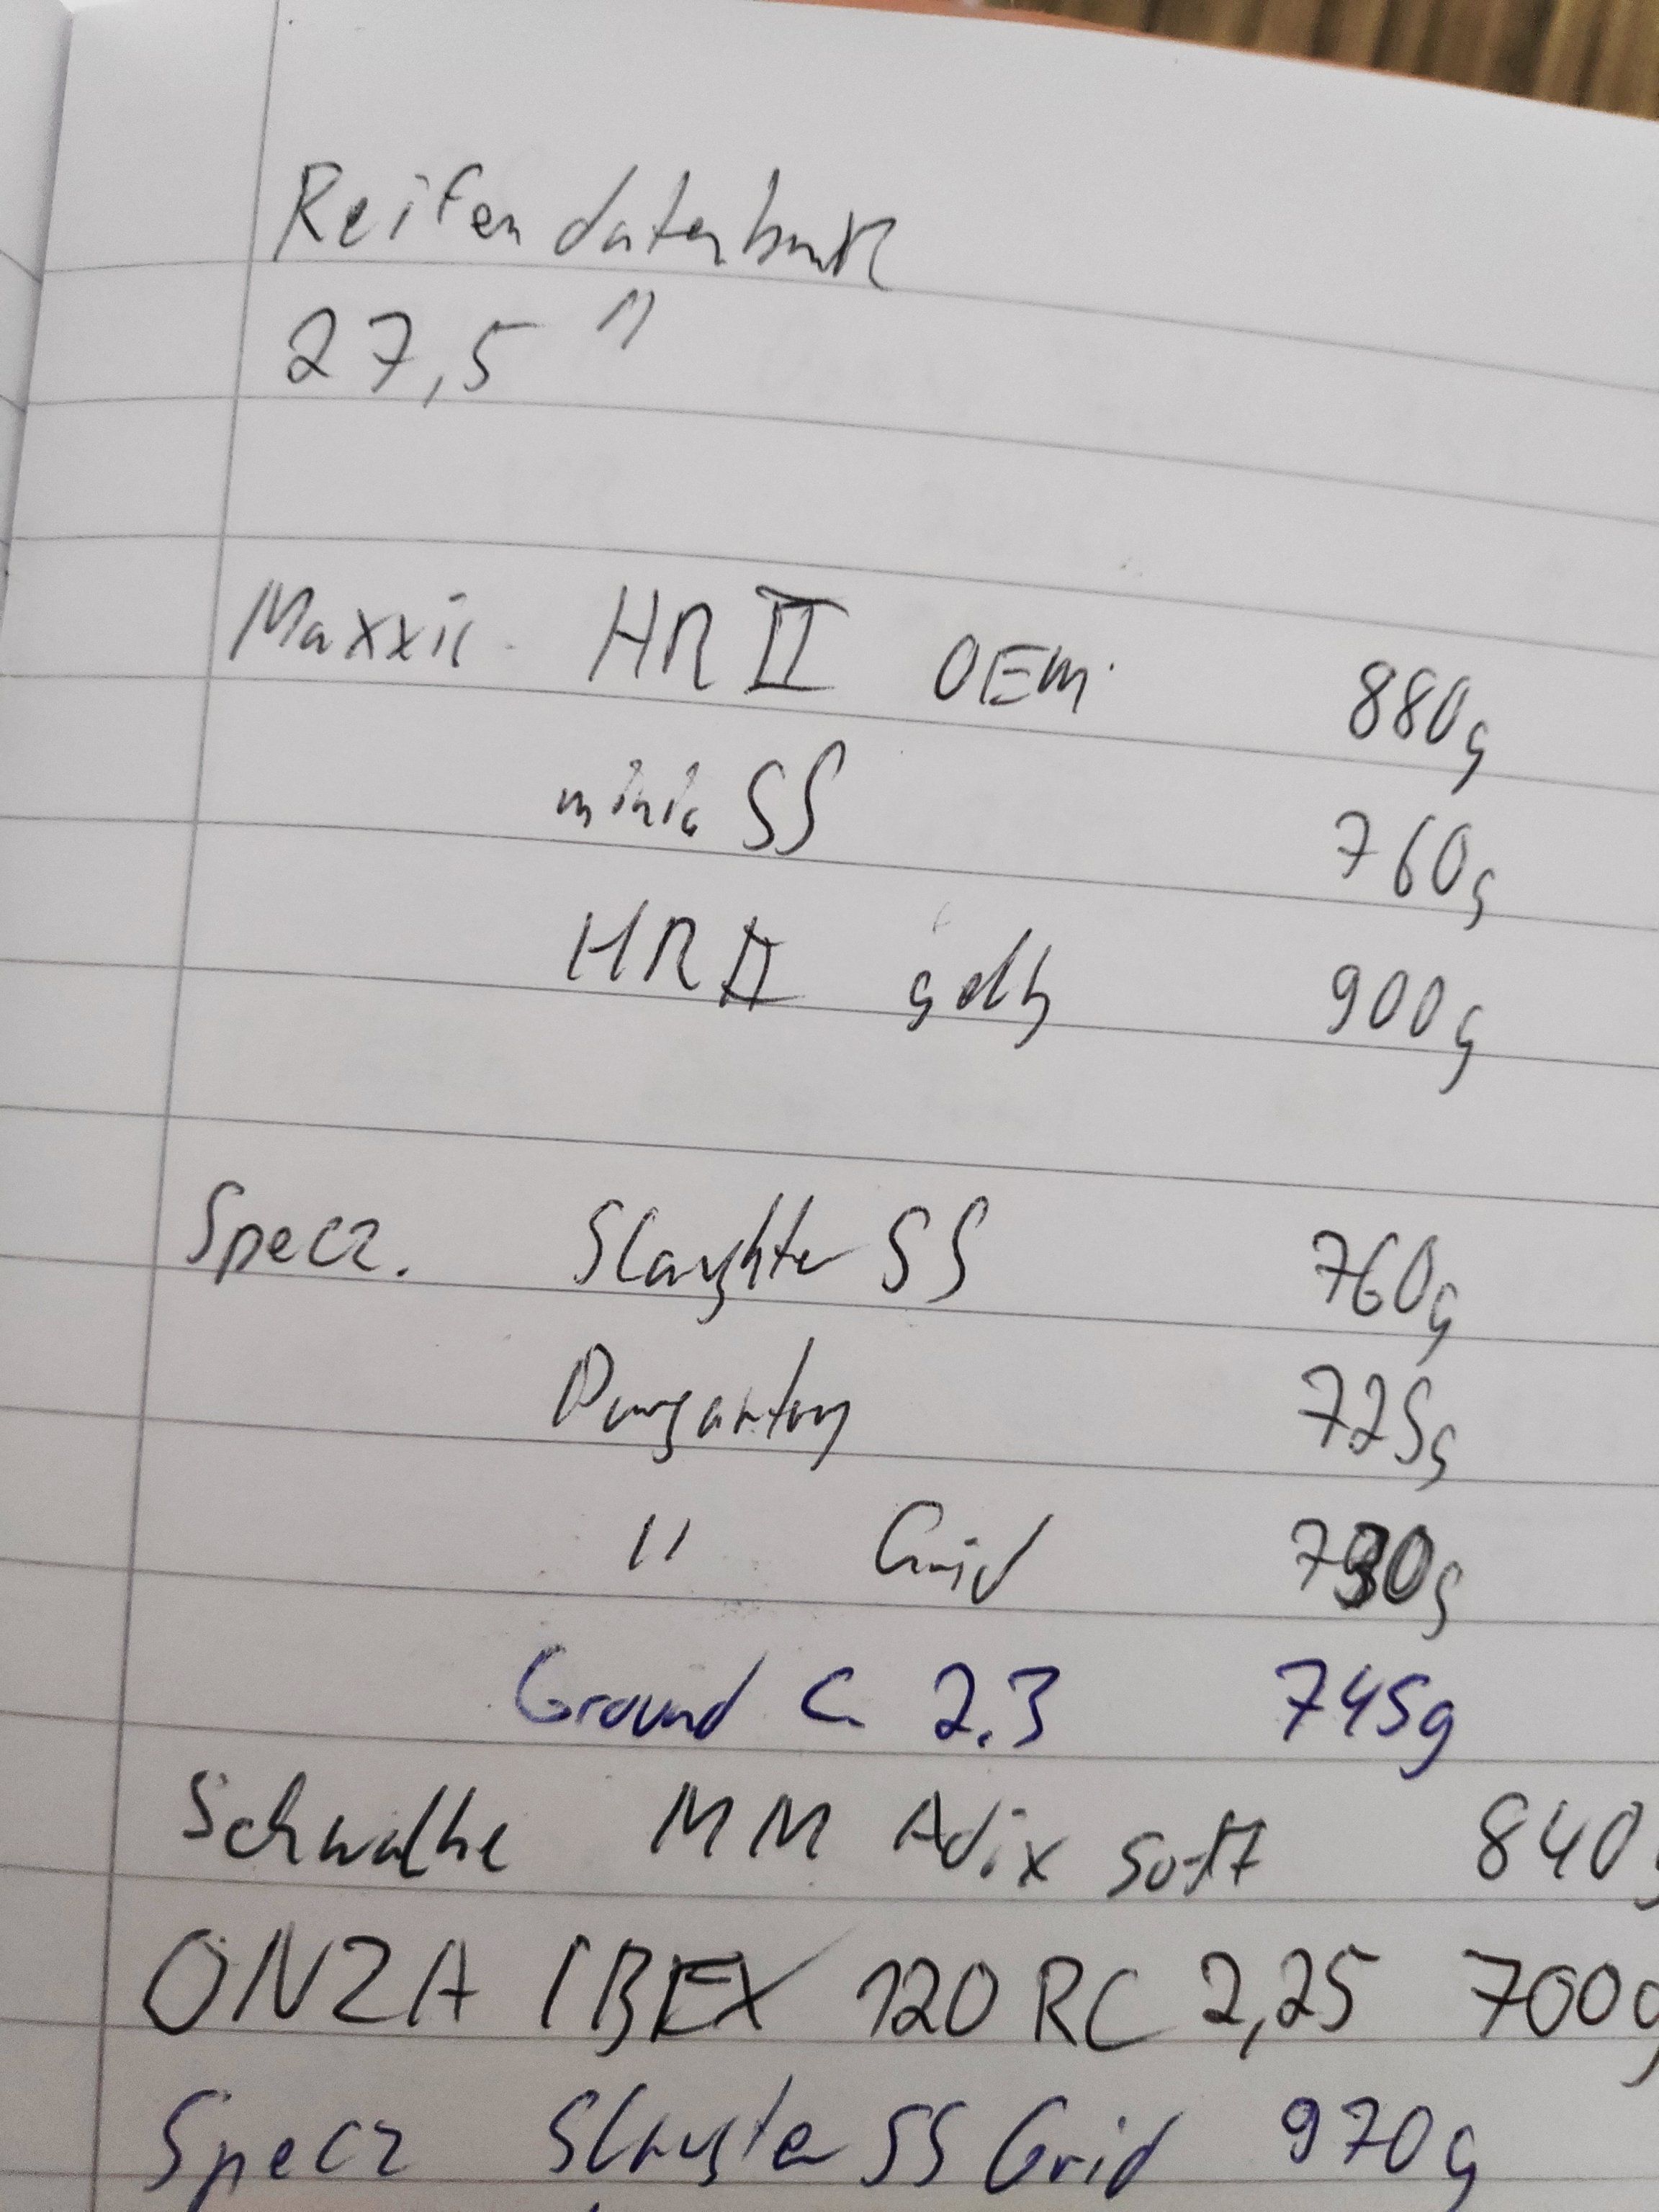 Reifendatenbank
27,5"
Maxxis HR II OEM 880g
minio SS 760g
HR II gelb 900g
Specz. Slaughter SS 760g
Purgartory 725g
" Grid g
Ground C. 2.3 745g
Schwalbe MM Adix soft 840g
ONZA IBEX 120 RC 2,25 700g
Specz Slaugter SS Grid 970g